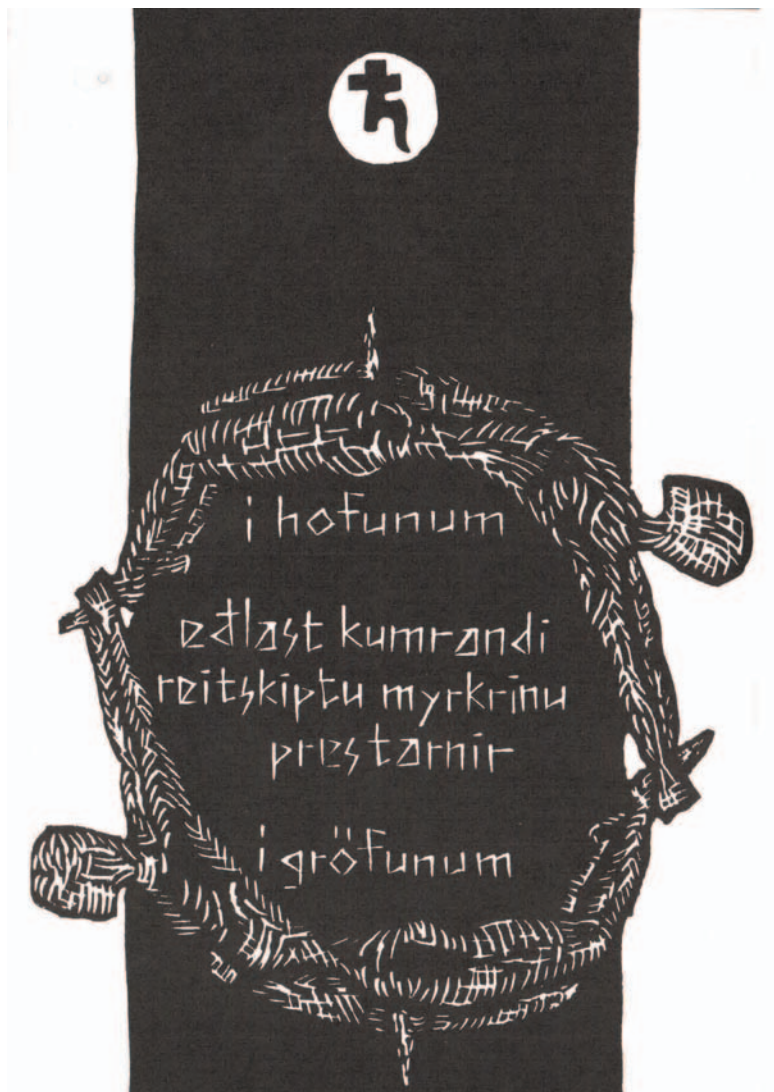 i hofunum
eđlast kumrandi
reitskiptu myrkrinu
prestarnir
i gröfunum